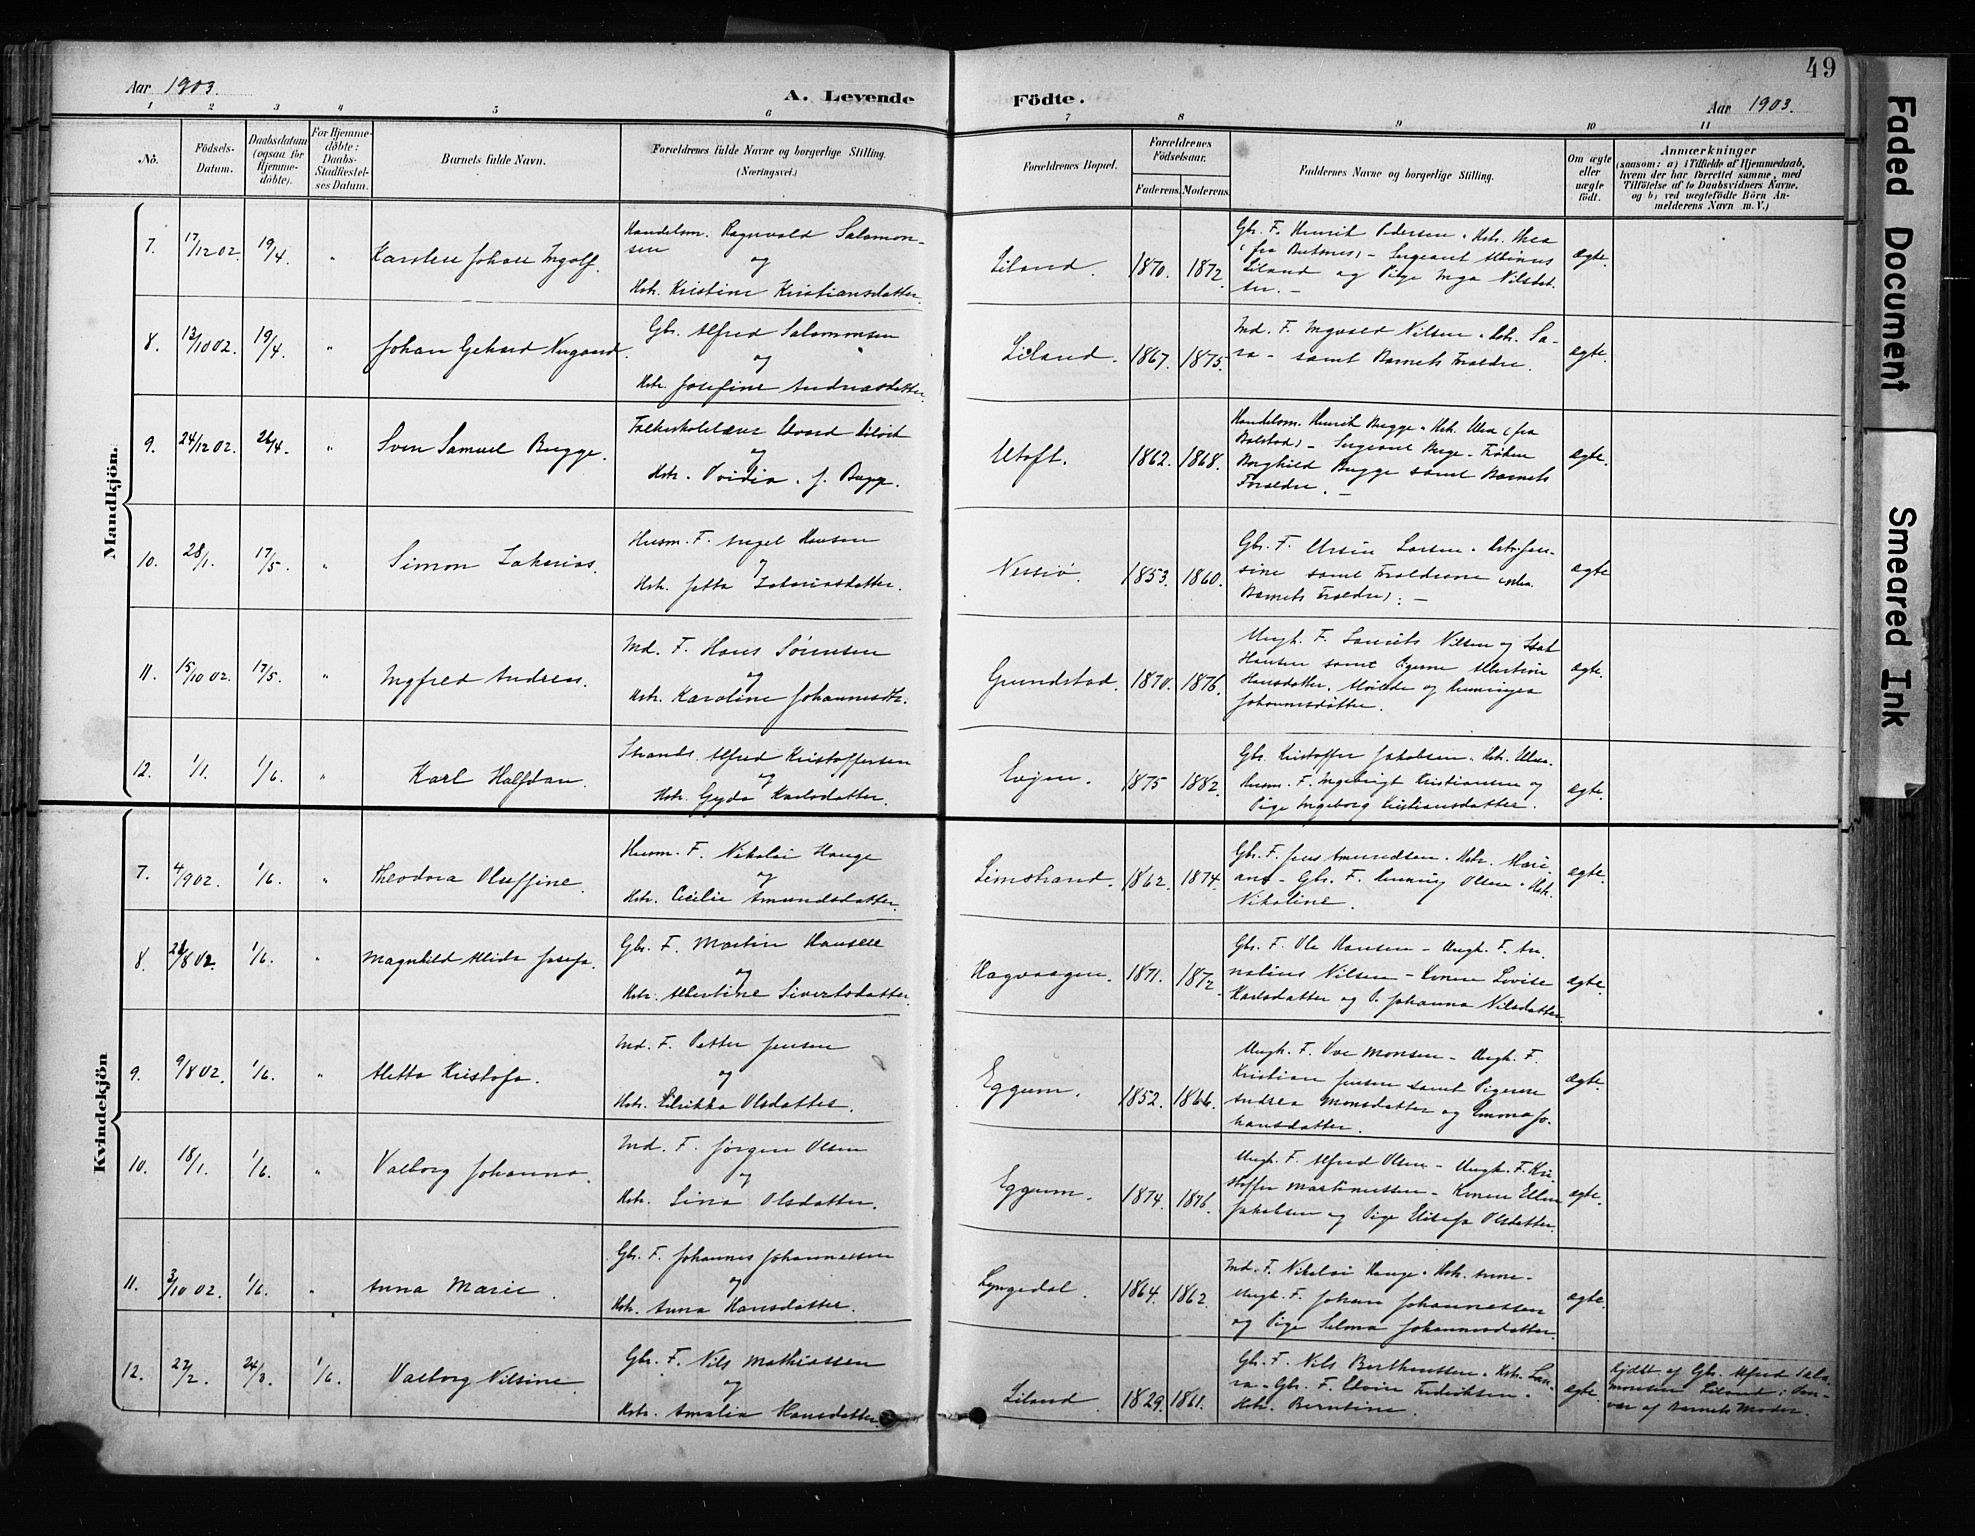 49
Aar 1903.
A. Levende Födte.
Aar 1903.
1 2 3 4 5 6 7 8 9 10 11
No.
Födsels-Datum.
Daabsdatum (ogsaa for Hjemmedöbte).
For Hjemmedöbte: Daabs-Stadfæstelses Datum.
Barnets fulde Navn.
Forældrenes fulde Navne og borgerlige Stilling. (Næringsvei.)
Forældrenes Bopæl.
Forældrenes Födselsaar.
Faderens. Moderens.
Faddernes Navne og borgerlige Stilling.
Om ægte eller uægte födt.
Anmærkninger
(saasom: a) i Tilfælde af Hjemmedaab,
hvem der har forrettet samme, med
Tilföielse af to Daabsvidners Navne.
og b) ved uægtefödte Börn An-
melderens Navn m. V.)
Mandkjön.
7. 17/12 02. 19/4. " Karsten Johan Ingolf.
Handelsm. Ragnvald Salomon-
sen
og
Hstr. Kristine Kristiansdatter.
Liland. 1870. 1872.
Gbr. F. Henrik Pedersen. Hstr. Thea
Liland og Pige Inga Nilsdat-
ter. -
Ægte.
8. 13/10 02. 19/4. " Johan Gehard
Gbr. Alfred Salomonsen
og
Hstr. Josefine Andreasdatter.
Liland. 1867. 1875.
Md. F. Ingvald Nilsen. Hstr. Sa-
ra - samt Barnets Forældre.
ægte.
9. 24/12 02. 26/4. " Sven Samuel Bugge.
og
f. Bugge.
Utoft. 1862. 1868.
Handelsm. Henrik Bugge. Hstr.
Borghild Bugge samt Barnets
Forældre. -
Ægte.
10. 28/1. 17/5. " Simon Zakarias.
Husm. F. Angel Hansen
og
Hstr. Jetta Zakariasdatter.
1853. 1860.
Gbr. F. Larsen.
sine samt Forældrene
Barnets Forældre). -
ægte
11. 15/10 02. 17/5. " Ingfred Andreas.
Md. F. Hans Sørensen
og
Hstr. Karoline Johannesdtr.
Grundstad. 1870. 1876.
Ungk. F. Laurits Nilsen og
Hansen samt Pigerne Albertine
Hansdatter.
Johannesdatter.
ægte.
12. 1/1. 1/6. " Karl Halfdan.
Strands. Alfred Kristoffersen
og
Hstr. Gyda Karlsdatter.
Evjen. 1875 1882.
Gbr. Kristoffer Jakobsen. Hstr.
Husm. F. Ingebrigt Kristiansen og
Pige Ingeborg Kristiansdatter.
ægte.
Kvindekjön
7. 4/9 02. 1/6. " Theodora Oluffine.
Husm. F. Nikolai Hauge
og
Hstr. Cecilie Amundsdatter.
Limstrand. 1862. 1874.
Gbr. F. Jens Amundsen. Hstr. Mari-
ane - Gbr. F. Henning Olsen. Hstr.
Nikoline.
ægte.
8. 1/6. " Magnhild Alida Josefa.
Gbr. F. Martin Hansen
og
Hstr. Albertine Sivertsdatter.
Hagvaagen. 1871. 1872.
Gbr. F. Ole Hansen - Ungk. F. An-
natius Nilsen - Konen Lovise
Karlsdatter og P. Johanna Nilsdatter.
ægte.
9. 9/8 02. 1/6. " Aletta Kristofa.
Md. F. Petter Jensen
og
Hstr. Olsdatter.
Eggum. 1852. 1866.
Ungk. F. Monsen - Ungk. F.
Kristian Jensen samt Pigerne
Andrea Monsdatter og Emma Jo-
hansdatter.
ægte.
10. 18/1. 1/6. " Valborg Johanna.
Md. F. Jørgen Olsen
og
Hstr. Lina Olsdatter.
Eggum. 1874. 1876.
Ungk. F. Alfred Olsen - Ungk. F. Kri-
stoffer Martinussen - Konen Ellen
Jakobsen og Pige Olsdatter.
ægte.
11. 3/10 02. 1/6. " Anna Marie.
Gbr. F. Johannes Johannessen
og
Hstr. Anna Hansdatter.
Lyngedal. 1864. 1862.
Md. F. Nikolai Hauge. Hstr. Anne -
Ungk. F. Johan Johannessen
og Pige Selma Johannesdatter.
ægte.
12. 27/2. 24/3. 1/6. Valborg Nilsine.
Gbr. F. Nils Mathiassen
og
Hstr. Amalia Hansdatter.
Liland. 1829. 1861.
Gbr. F. Nils Bertheussen. Hstr. Lau-
ra - Gbr. F. Edvin Fredriksen.
Hstr. Berntine.
ægte
Hjdbt. af Gbr. Alfred Salo-
monsen Liland i Nær-
vær af Barnets Moder.
Faded Document
Smeared Ink